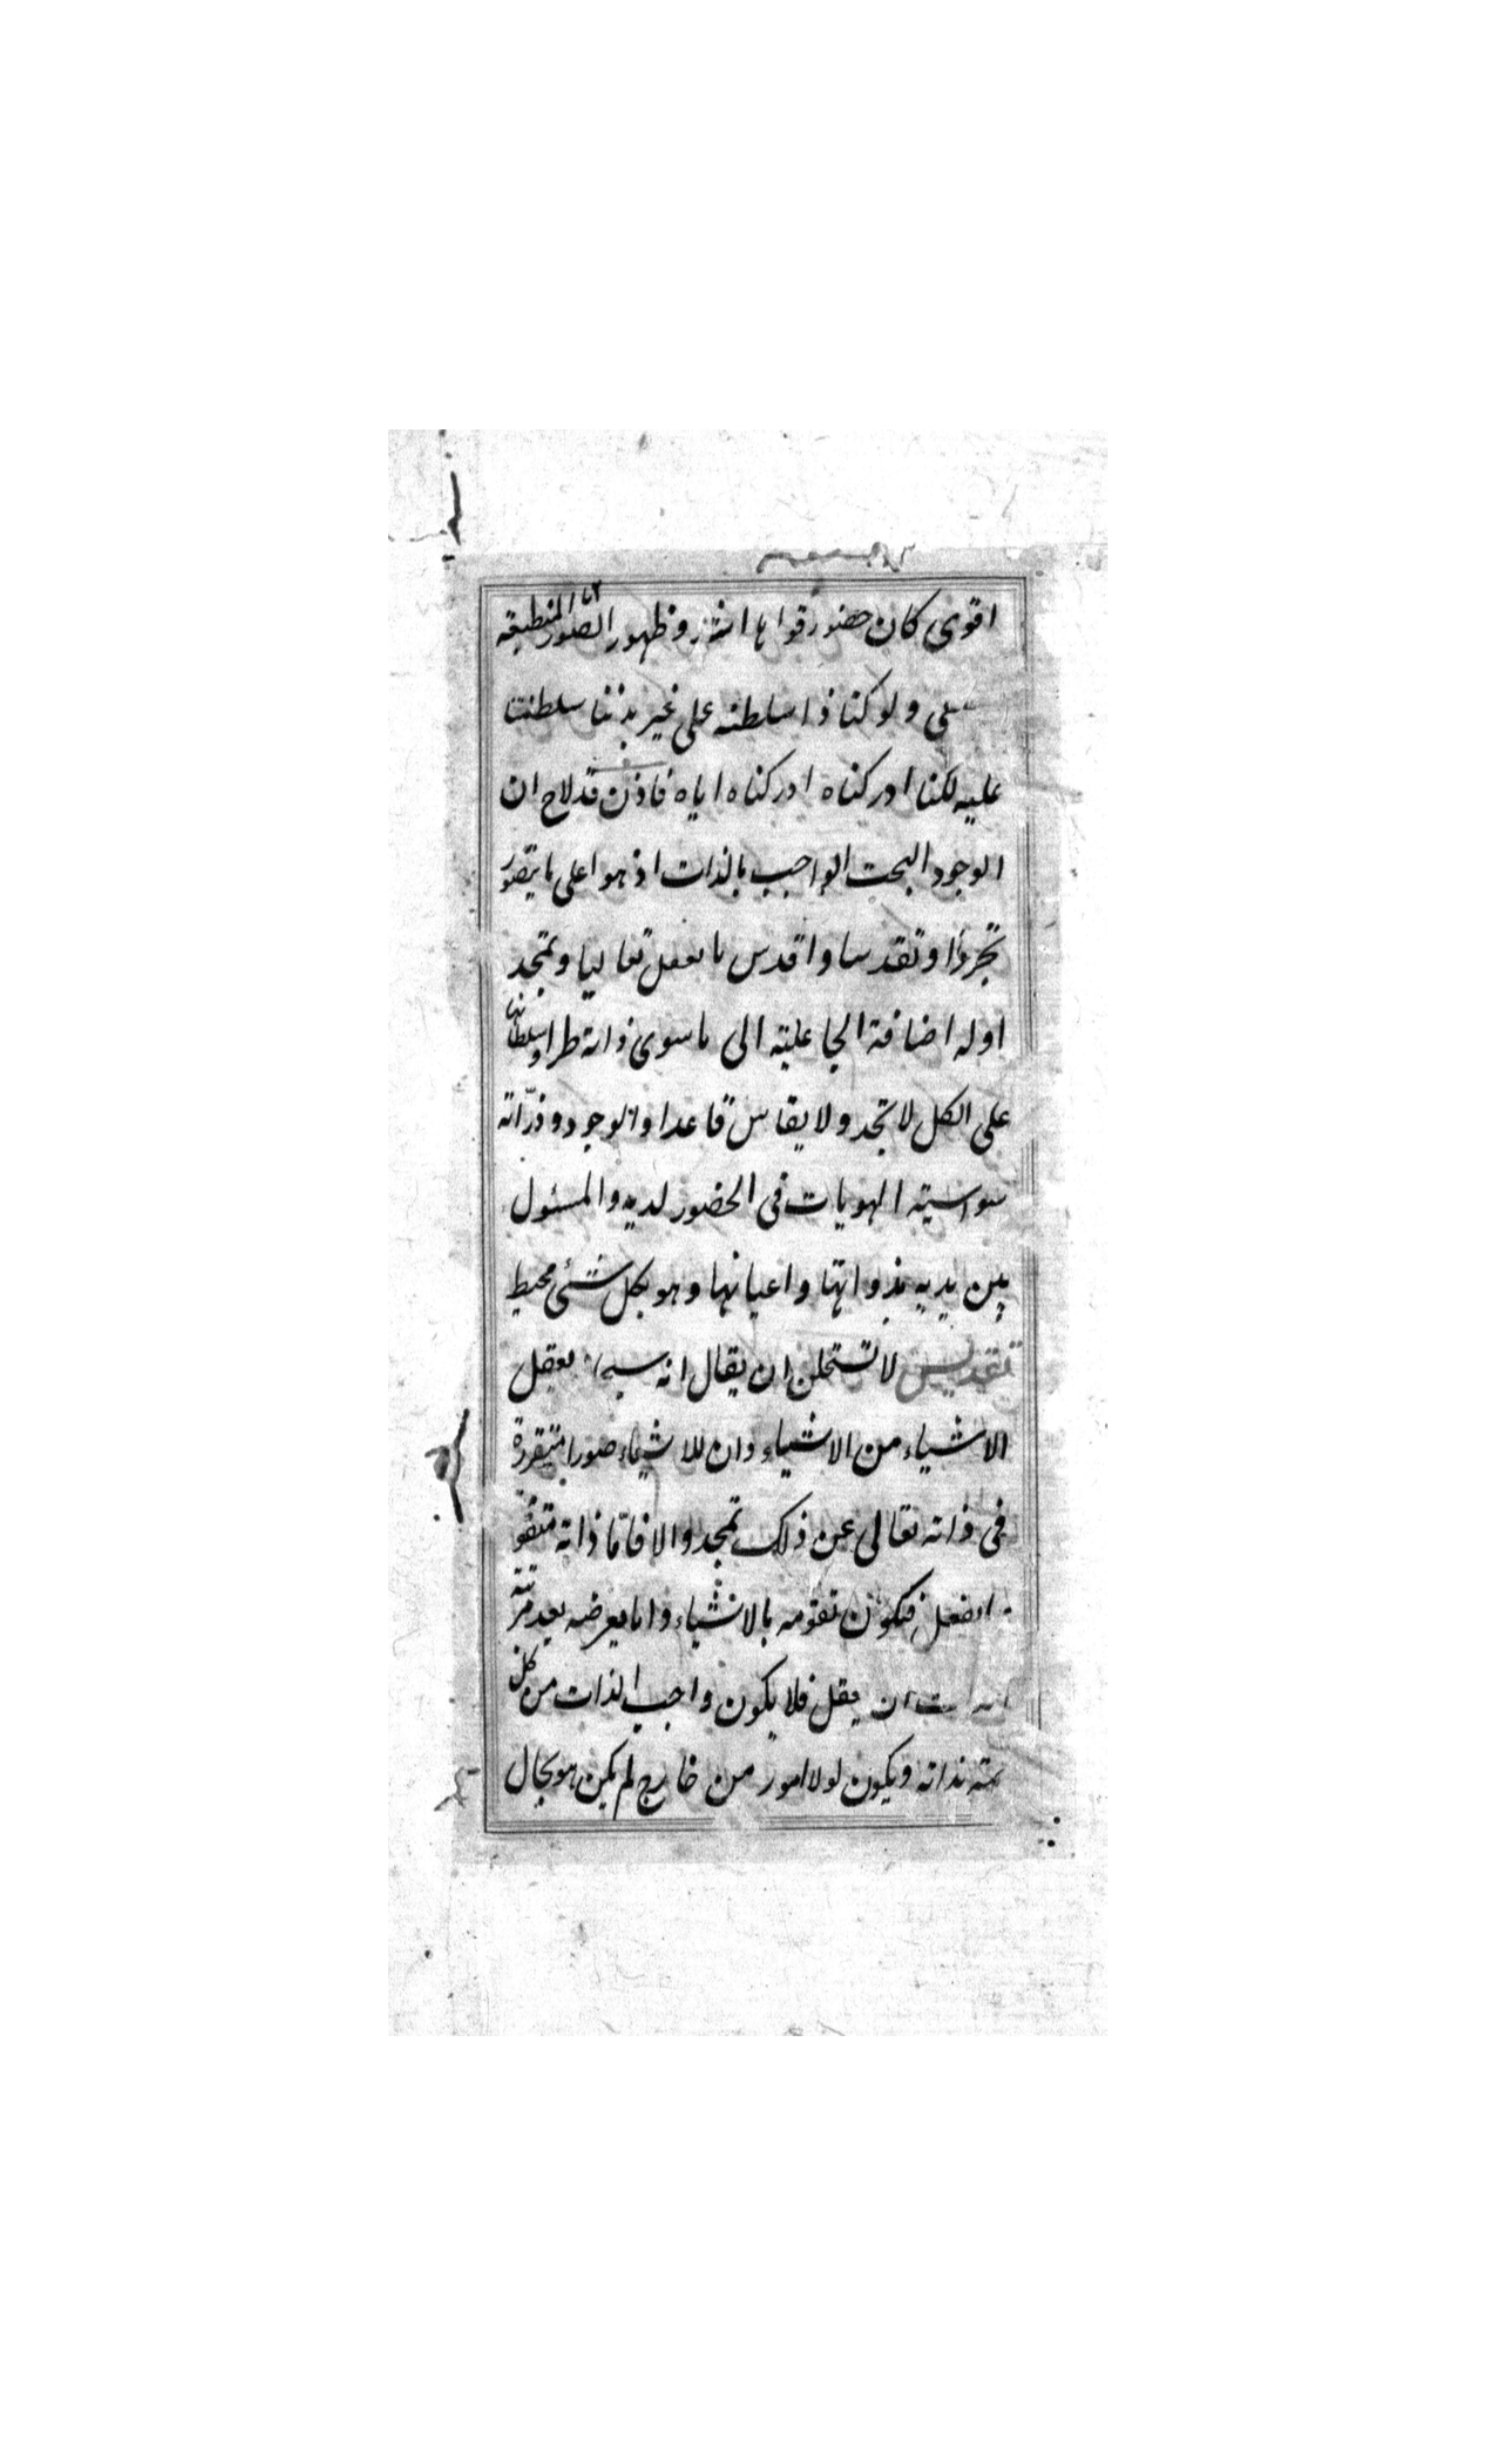 اقوى كان حضور قواها اشد وظهور الصور المنطبقة
ولو كنا ذا سلطنة على غير بدننا سلطنتنا
عليه لكنا ادركناه ادركناه اياه فاذن قد لاح ان
الوجود البحت الواجب بالذات اذ هو اعلى ما يتصور
تجردا وتقدسا واقدس ما يعقل تعاليا وتمجد
اوله اضافة الجاعلية الى ما سوى ذاته طرا وسلطانا
على الكل لا تحد ولا يقاس قاعدا والوجود وذراته
سواسية الهويات فى الحضور لديه والمسئول
بين يديه بذواتها واعيانها وهو بكل شئ محيط
تقديس لا تستحلن ان يقال انه يعقل
الاشياء من الاشياء وان للاشياء صورا متقررة
فى ذاته تعالى عن ذلك تمجد والا فاما ذاته متقو
فيكون تقومه بالاشياء واما يعرضه بعد مرتبة
ان يعقل فلا يكون واجب الذات من كل
ويكون لولا امور من خارج لم يكن هو بحال